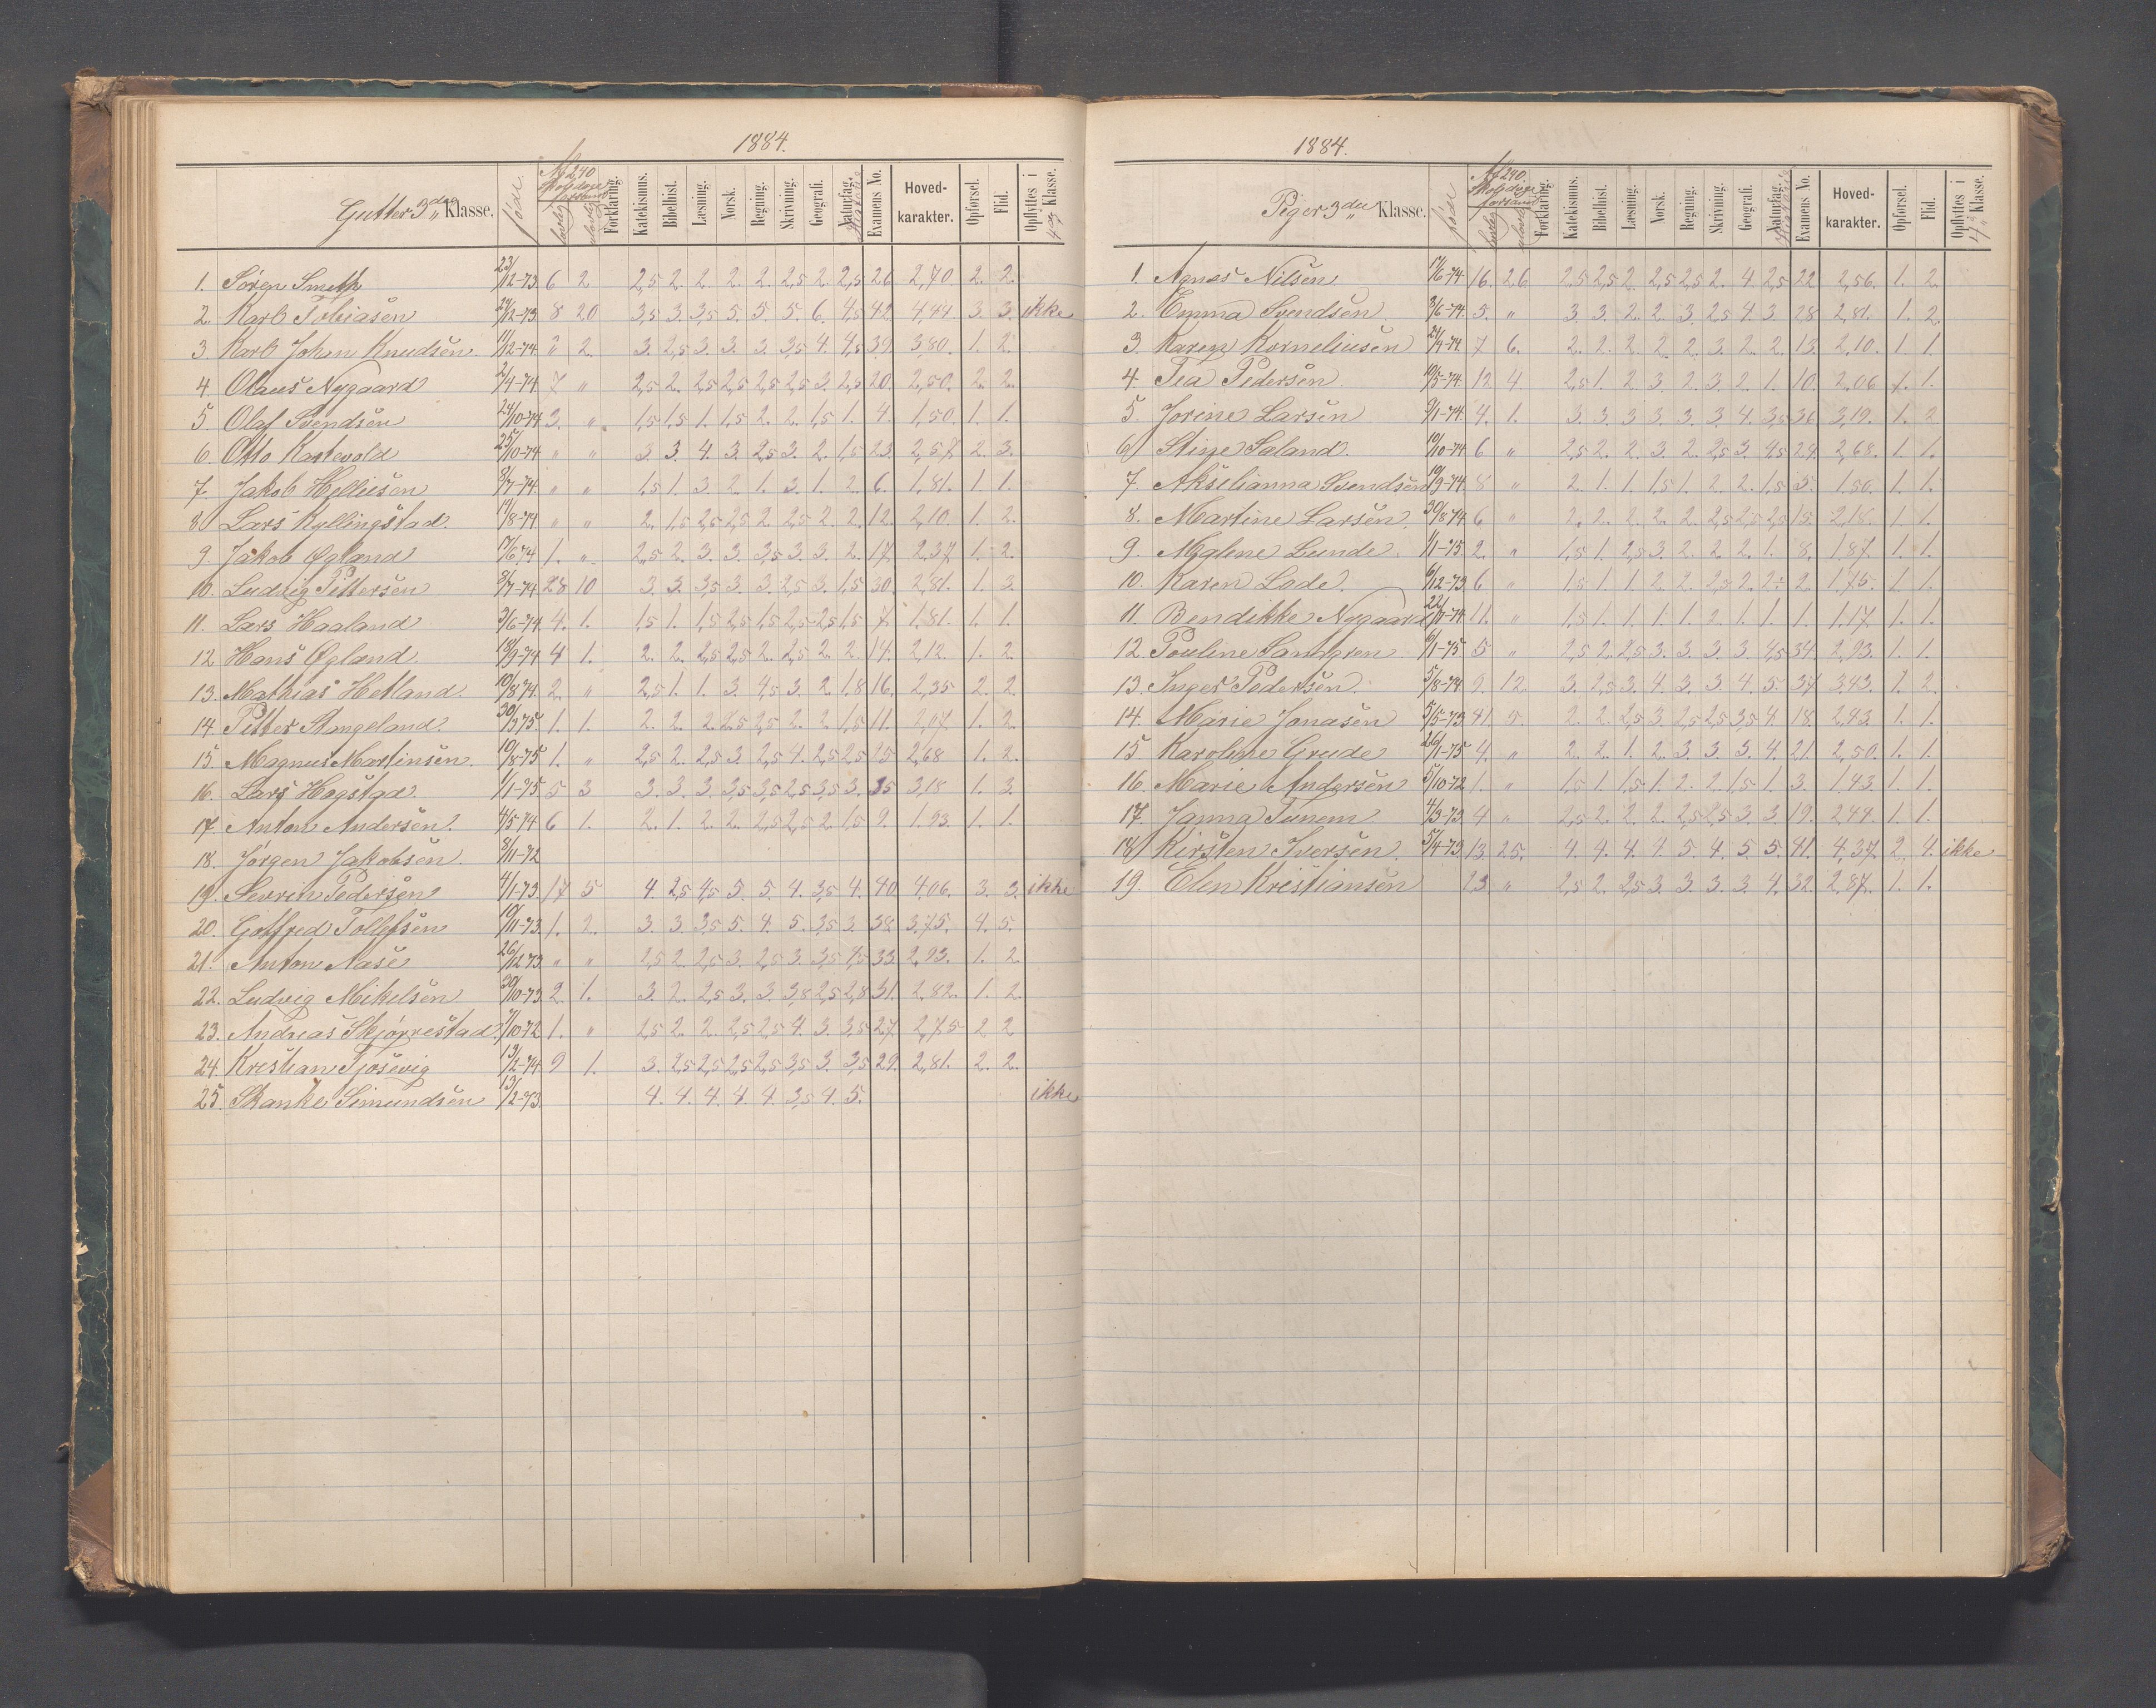 1884.
Gutter 3die Klasse.
føde.
Af 240 Skoledage forsømt
lovlig
ulovlig
Forklaring.
Katekismus.
Bibelhist.
Læsning.
Norsk.
Regning.
Skrivning.
Geografi.
Naturfag.
Historie
Examens No.
Hoved-karakter.
Opførsel.
Flid.
Opflyttes i 4de Klasse.
1. Søren Smeth 23/12-73 6 2 2,5 2. 2. 2. 2. 2,5 2. 2,5 26 2,70 2. 2.
2. Karl Tobiasen /12-73 8 20 3,5 3. 3,5 5. 5. 5. 6. 4,5 42. 4,44. 3. 3. ikke
3 Karl Johan Knudsen /12-74. 2 2. 3. 2,5 3. 3. 3. 3,5 4. 4,5 39. 3,80. 1. 2.
4 Olaus Nygaard 2/4-74. 7 " 2,5 2. 2,5 2,5 2,5 2,5 3. 2,5 20. 2,50. 2. 2.
5 Olaf Svendsen 24/10-74 3. " 1,5 1,5 1. 1,5 2. 2. 1,5 1. 4. 1,50. 1. 1.
6. Otto Kartevold 25/10-74 " " 3 3. 4. 3. 2,5 3. 2. 1,5 23. 2,57 2. 3.
7. Jakob Helliesen 8/7-74. " " 1,5 1. 3. 2. 1. 3. 1. 2. 6. 1,81. 1. 1.
8. Lars Kyllingstad. 14/8-74 " " 2. 1,5 2,5 2,5 2. 2,5 2. 2. 12. 2,10. 1. 2.
9. Jakob Øgland 17/6-74 1. " 2,5 2. 3. 3. 3,5 3. 3. 2. 17. 2,37. 1. 2.
10. Ludvig Pettersen 8/7-74 28 10 3. 3. 3,5 3. 3. 2,5 3. 1,5 30. 2,81. 1. 3.
11. Lars Haaland 3/6-74 4. 1. 1,5 1. 1,5 2,5 1,5 2,5 2,5 1,5 7. 1,81. 1. 1.
12 Hans Øgland. 18/9-74 4 1. 2. 2. 2,5 2,5 2. 2,5 2. 2. 14. 2,12. 1. 2.
13. Mathias Hetland. 10/8 74. 2. " 2,5 1. 1. 3. 4,5 3. 2. 1.8 16. 2,35 2. 2.
14. Petter Stangeland. 30/3 75. 1. 1. 2. 2. 2. 2,5 2,5 2. 2. 1,5 11. 2,07. 1. 2.
15. Magnus Martinsen. 10/8-75 1. " 2,5 2. 2,5 3. 2,5 4. 2,5 2,5 25 2,68 1. 2.
16. Lars Hogstad. 1/1-75 5 3 3. 3. 3. 3,5 3,5 2,5 3,5 3. 35 3,18 1. 3.
17. Anton Andersen. 4/5-74 6 1. 2. 1. 2. 2. 2,5 2,5 2. 1,5 9. 1.93. 1. 1.
18. Jørgen Jakobsen. 3/11-72
19. Severin Pedersen 4/1-73 17 5 4. 2,5 4,5 5. 5. 4. 3,5 4. 40 4,06. 3. 3. ikke
20. Gotfred Tollefsen 10/11-73 1. 2. 3. 3. 3,5 5. 4. 5. 3,5 3. 38 3,75. 4. 5.
21. Anton Aase 26/12 73 " " 2,5 2. 2,5 3. 2,5 3. 3,5 4,5 33 2,93. 1. 2.
22. Ludvig Mikelsen 30/10-73 2. 1. 3. 2. 2,5 3. 3. 3,8 2,5 2,8 31. 2,82. 1. 2.
23. Andreas Skjørrestad. 7/10-72 1. " 2,5 2. 2. 2,5 2,5 4. 3. 3,5 27. 2,75 2 2
24. Kristian Tjosevig 13/2-74 9 1. 3. 2,5 2,5 2,5 2,5 3,5 3. 3,5 29. 2,81. 2. 2.
25. Skanke Simundsen 13/2-73. 4. 4. 4. 4. 4. 3,5 4. 5. ikke
1884.
Piger 3die Klasse.
føde
Af 240. Skoledage forsømt
lovlig
ulovlig
Forklaring.
Katekismus.
Bibelhist.
Læsning.
Norsk.
Regning.
Skrivning.
Geografi.
Naturfag.
Historie
Examens No.
Hoved-karakter.
Opførsel.
Flid.
Opflyttes i 4de Klasse.
1. Agnes Nilsen 17/6-74 16. 26 2,5 2,5 2. 2,5 2,5 2. 4. 2,5 22. 2,56. 1. 2.
2. Emma Svendsen. 8/6-74. 5. " 3. 3. 2. 2. 3. 2,5 4. 3. 28 2,81. 1. 2.
3. Karen Korneliusen 21/9-74. 7 6. 2. 2. 2. 2. 2. 3. 2. 2. 13. 2,10. 1 1.
4. Tea Pedersen. 19/5-74. 12 4 2,5 1. 2. 3. 2. 3. 2. 1. 10. 2,06 1. 1.
5. Jorine Larsen 9/1-74 4. 1. 3. 3. 3 3. 3. 3. 4. 3,5 36 3,19. 1. 2
6. Stine Saland. 19/10-74 6 " 2,5 2. 2. 3. 2. 2,5 3. 4,5 24. 2,68. 1. 1.
7. Akselianna Svendsen 19/9-74 8 " 2. 1. 1. 1,5 1. 2. 2. 1,5 5. 1.50. 1. 1.
8. Martine Larsen. 30/8 74 6 " 2. 2. 2. 2. 2. 2,5 2,5 2,5 15. 2,18. 1. 1.
9. Malene Lunde. 1/1-75 2. " 1,5 1. 2,5 3. 2. 2. 2. 1. 8. 1.87. 1. 1.
10. Karen Lode. 6/12-73 6 " 1,5 1. 1. 2. 2. 2,5 2. 2. 2. 1.75. 1. 1.
11. Bendikke Nygaard 22/10-74 11. " 1,5 1. 1. 1. 1. 2. 1. 1. 1. 1.17. 1. 1.
12. Pouline Sandgren 6/1-75. 5 " 2,5 2. 2,5 3. 3. 3. 3. 4,5 34. 2,93. 1. 1.
13. Inger Pedersen. 5/8-74 9. 12. 3. 2,5 3. 4. 3. 3. 4. 5. 37 3,43. 1. 2.
14. Marie Jonasen 5/5-73 41. 5. 2. 2. 2,5 3. 2,5 2,5 3,5 4. 18. 2,43. 1. 1.
15. Karoline Grude 26/1-75 4. " 2. 2. 1. 2. 3. 3. 3. 4. 21. 2,50. 1. 1.
16. Marie Andersen 5/10-72 1. " 1,5 1. 1,5 1. 2. 2. 1,5 1. 3. 1.43. 1. 1.
17. Janna Tunem 4/3-73 4 " 2,5 2. 2. 2. 2,5 2,5 3. 3. 19. 2,44. 1. 1.
18. Kirsten Iversen. 5/4-73 13. 25. 4. 4. 4. 4. 5. 4. 5. 5. 41. 4,37. 2. 4. ikke
19. Elen Kristiansen 23. " 2,5 2. 2,5 3. 3. 3. 3. 4. 32. 2,87. 1. 1.